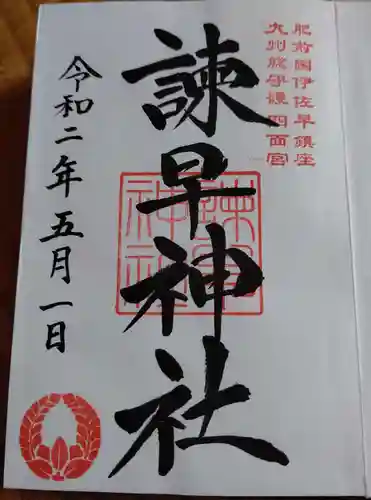 肥前國伊佐早鎮座
九州総守護四面宮
諫早神社
諫早神社
令和二年五月一日